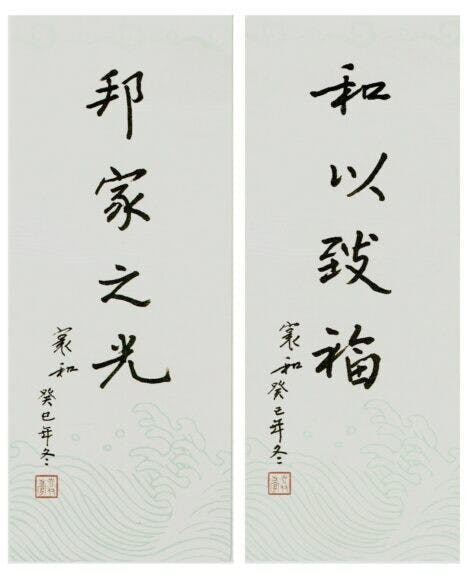 和以致福
寰和
癸巳年冬
邦家之光
寰和
癸巳年冬